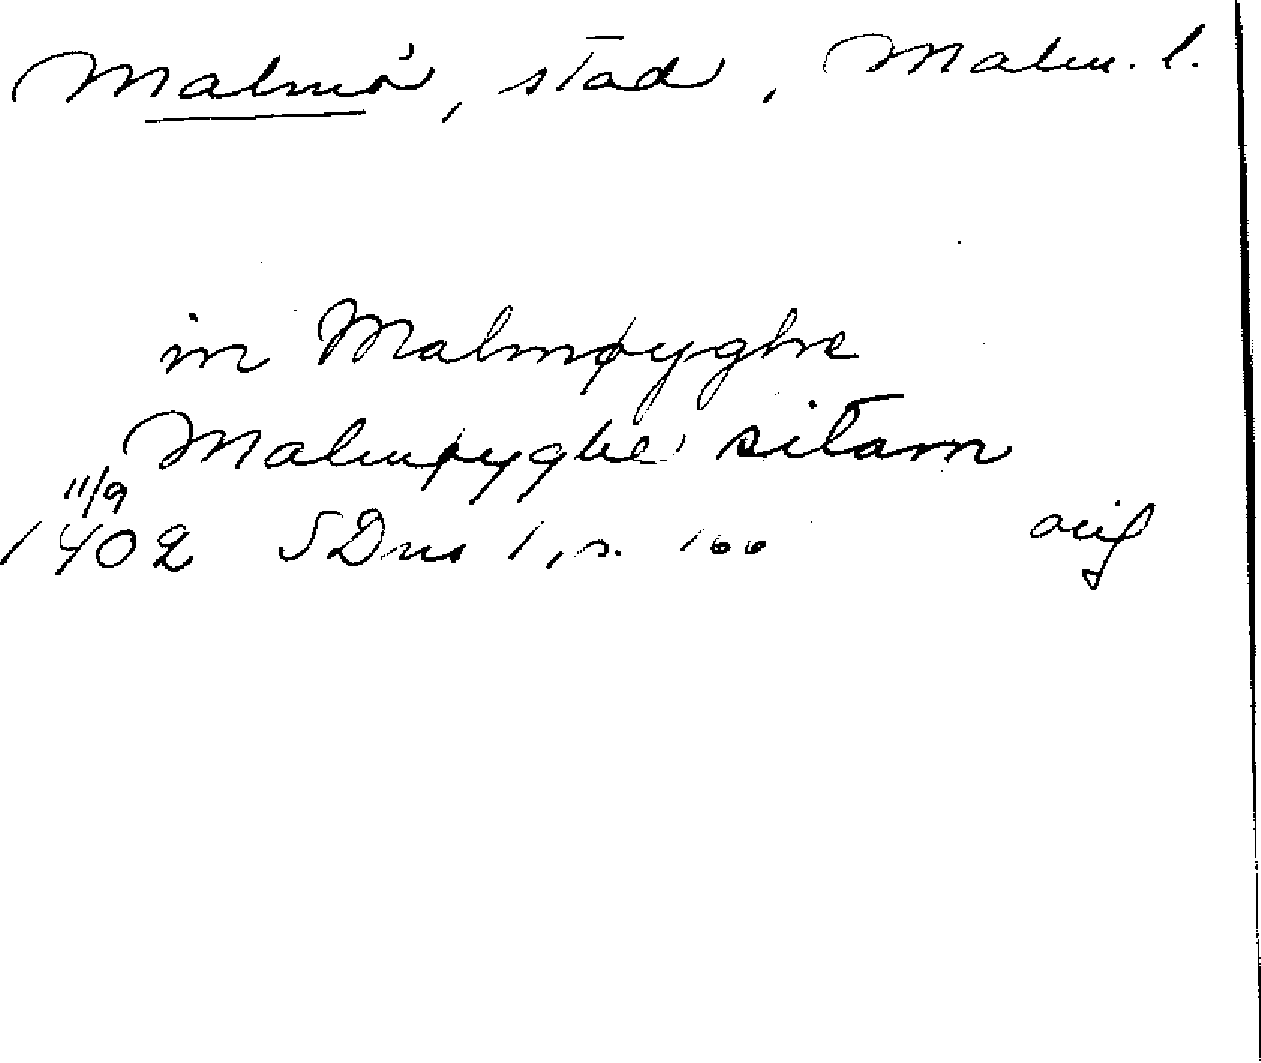 Malmö, stad, Malm. l.
in Malmøyghe
Malmøyghe sitam
11/9
1402 SDns 1, s. 166 orig